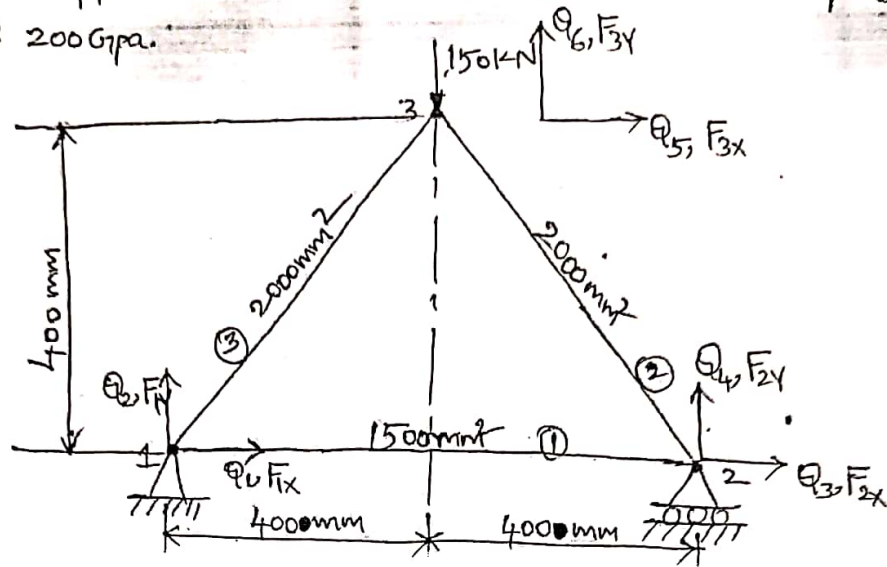 200Gpa.
150KN
Q6, F3Y
3
Q5, F3X
400 mm
2000mm²
2000mm²
3
2
Q2, F1Y
Q4, F2Y
1500mm²
1
1
Q1, F1X
2
Q3, F2X
4000mm
4000mm